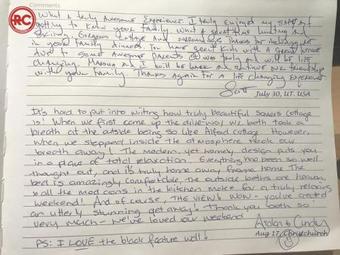 Comments
RC
What a truly Awesome Experience I truly enjoyed my
getting to know your family. What a great that hunting and
Gorgeous Estate and Animals. Thanks for including me
in your family dinners. You have great kids with a great
And some Awesome Parents. It was truly for me will be life
changing. I will be back and to have
with your family. Thanks again for a life changing experience
Scott
July 30, UT. USA
It's hard to put into writing how truly beautiful Squires Cottage
is! When we first came up the driveway we both took a
breath at the outside being so like Alford cottage. However,
when we stepped inside the atmosphere took our
breath away! The modern, yet homely design puts you
in a place of total relaxation. Everything has been so well
thought out, and is truly home away from home. The
bed is amazingly comfortable, the outside baths are heaven,
& all the mod cons in the kitchen make for a truly relaxing
weekend! And of course, THE VIEW! WOW - you've created
an utterly stunning get away! Thank you both so
very much - we've loved our weekend
& Cindy
Aug 17, Christchurch
PS: I LOVE the black feature wall!